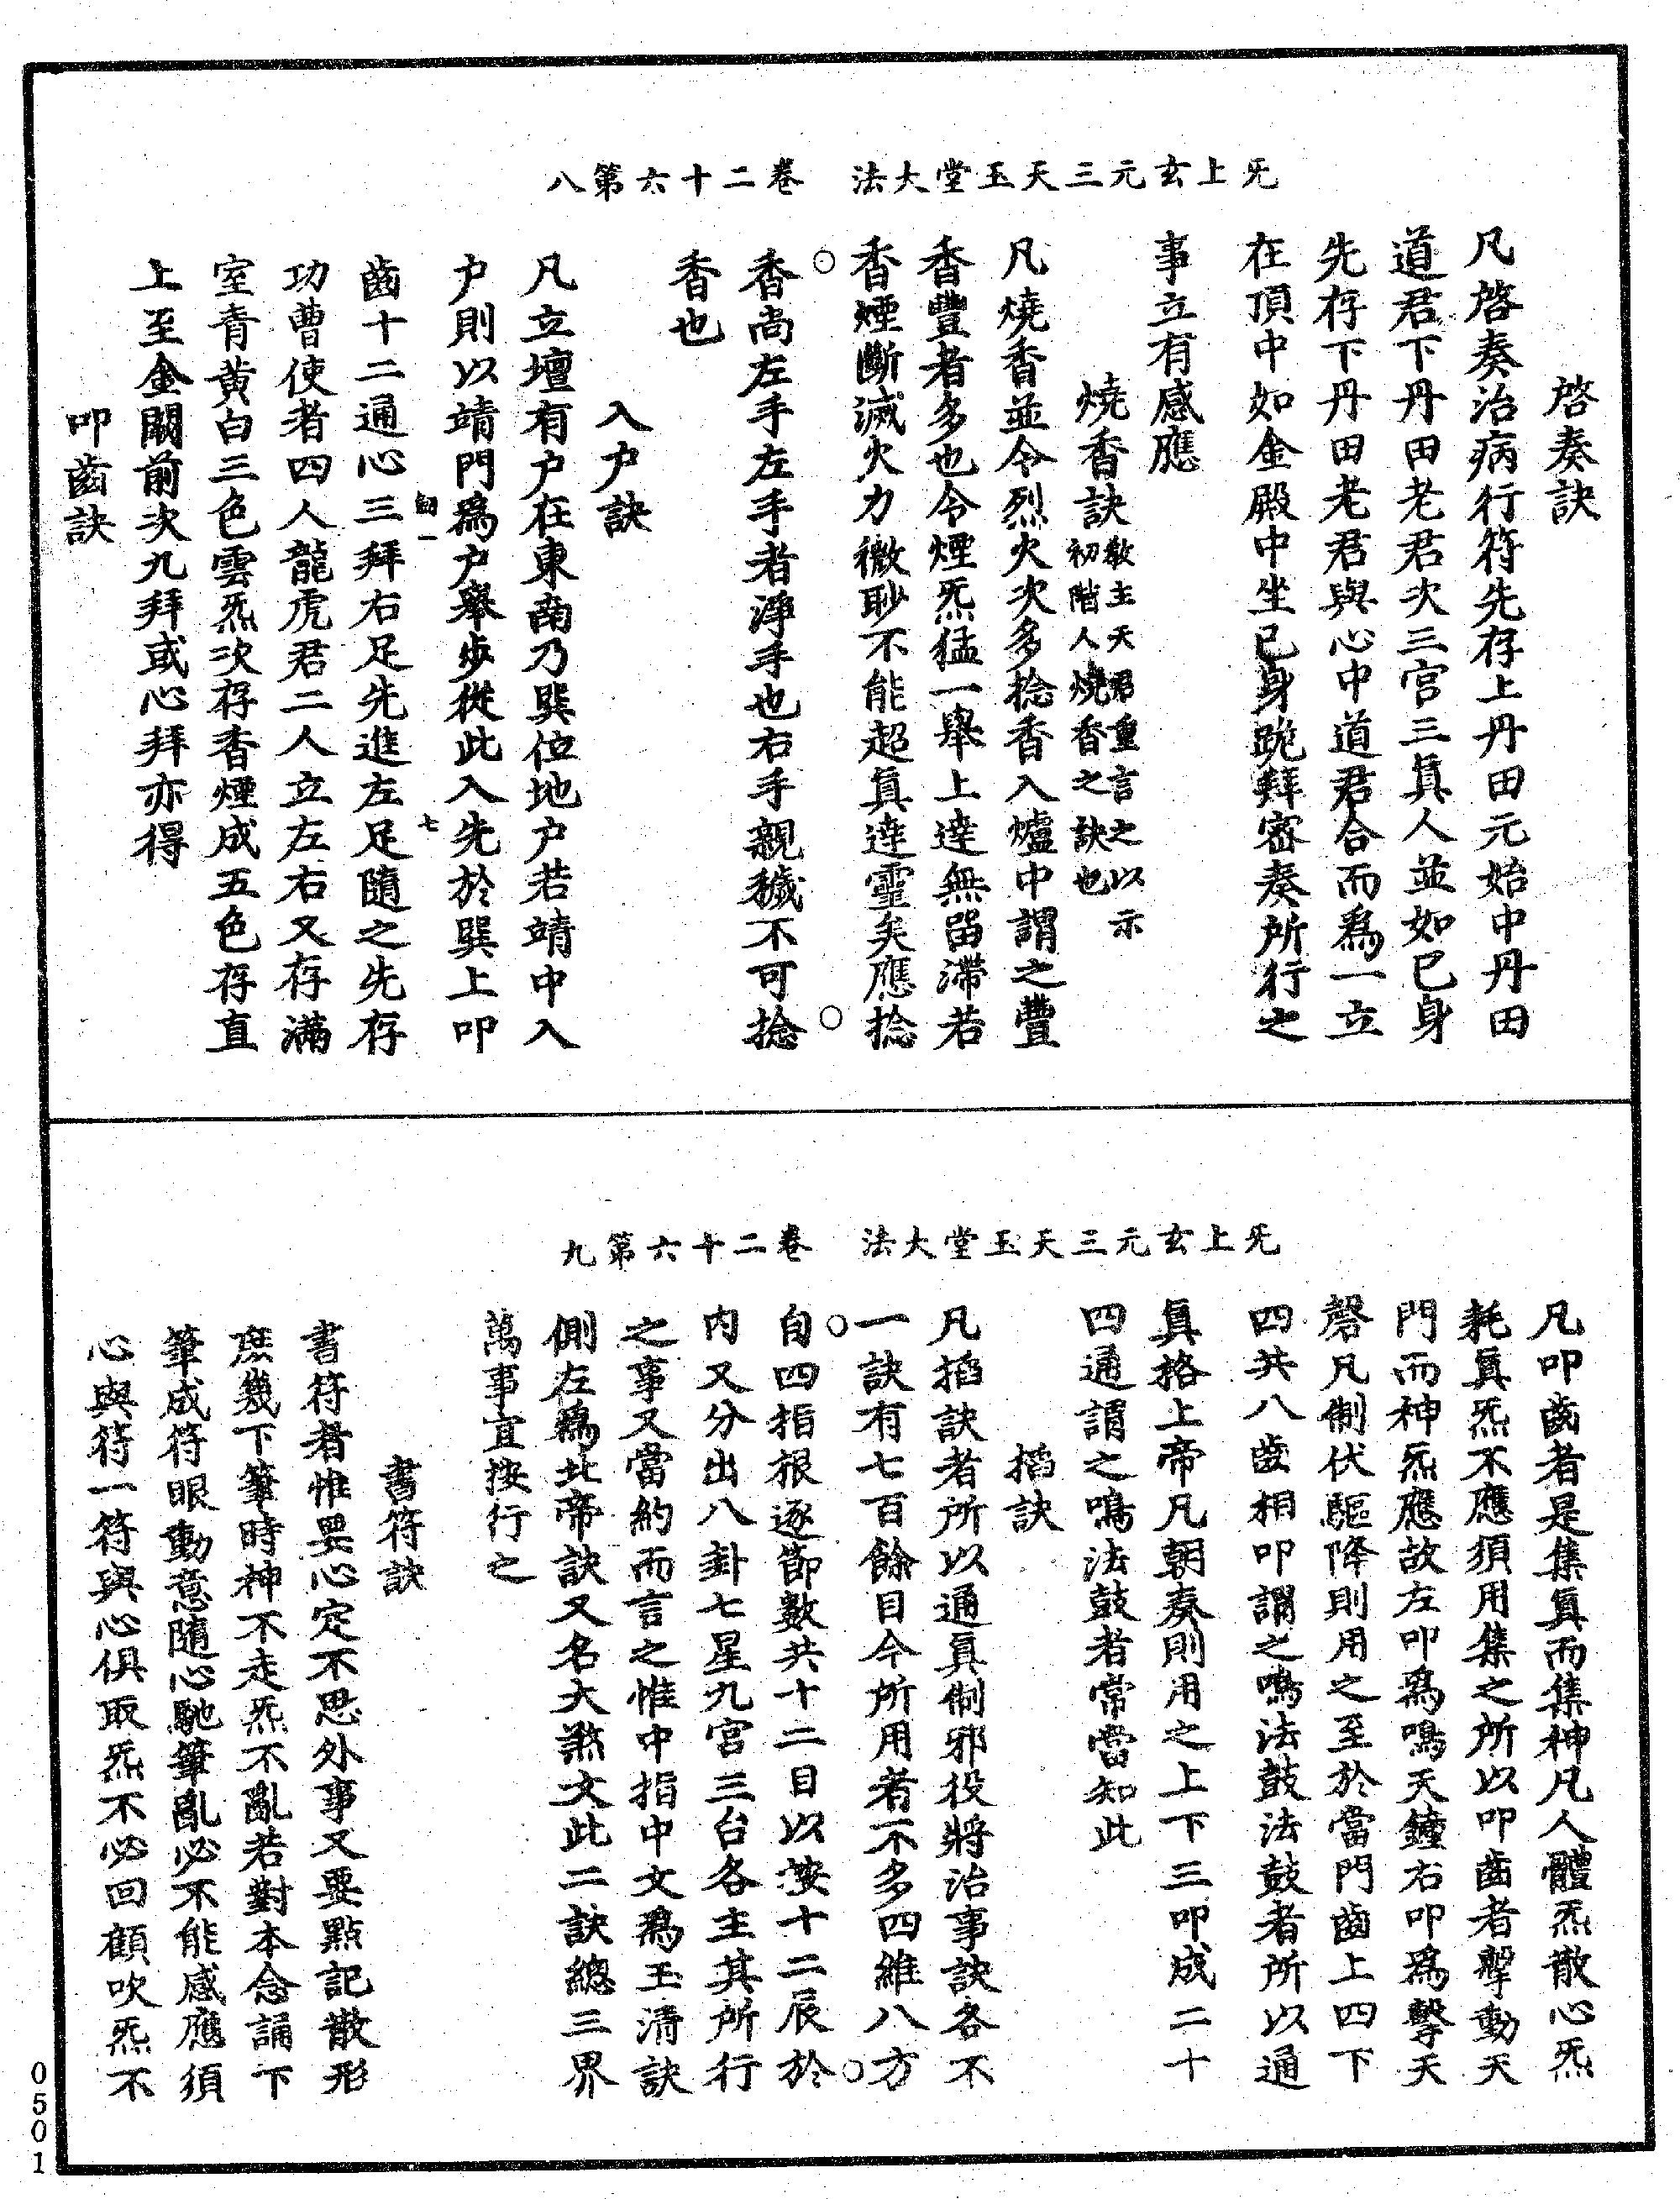 无上玄元三天玉堂大法　卷二十六第八
啓奏訣
凡啓奏治病行符先存上丹田元始中丹田
道君下丹田老君次三宫三眞人並如已身
先存下丹田老君與心中道君合而爲一立
在頂中如金殿中坐已身跪拜密奏所行之
事立有感應
燒香訣教主天君重言之以示初階人燒香之訣也
凡燒香並令烈火次多捻香入爐中謂之豐
香豐者多也令煙炁猛一舉上達無留滯若
香煙斷滅火力微眇不能超眞達靈矣應捻
香尚左手左手者淨手也右手親穢不可捻
香也
入户訣
凡立壇有户在東南乃巽位地户若靖中入
户則以靖門爲户舉步從此入先於巽上叩
齒十二通心三拜右足先進左足隨之先存
功曹使者四人龍虎君二人立左右又存滿
室青黄白三色雲炁次存香煙成五色存直
上至金闕前次九拜或心拜亦得
叩齒訣
无上玄元三天玉堂大法　卷二十六第九
凡叩齒者是集眞而集神凡人體炁散心炁
耗眞炁不應須用集之所以叩齒者擊動天
門而神炁應故左叩爲鳴天鐘右叩爲擊天
磬凡制伏驅降則用之至於當門齒上四下
四共八齒相叩謂之鳴法鼓法鼓者所以通
眞格上帝凡朝奏則用之上下三叩成二十
四通謂之鳴法鼓者常當知此
掐訣
凡掐訣者所以通眞制邪役將治事訣各不
一訣有七百餘目今所用者不多四維八方
自四指根逐節數共十二目以按十二辰於
内又分出八卦七星九宫三台各主其所行
之事又當約而言之惟中指中文爲玉清訣
側左爲北帝訣又名大煞文此二訣總三界
萬事宜按行之
書符訣
書符者惟要心定不思外事又要點記散形
庶幾下筆時神不走炁不亂若對本念誦下
筆成符眼動意隨心馳筆亂必不能感應須
心與符一符與心俱取炁不必回顧吹炁不
0501